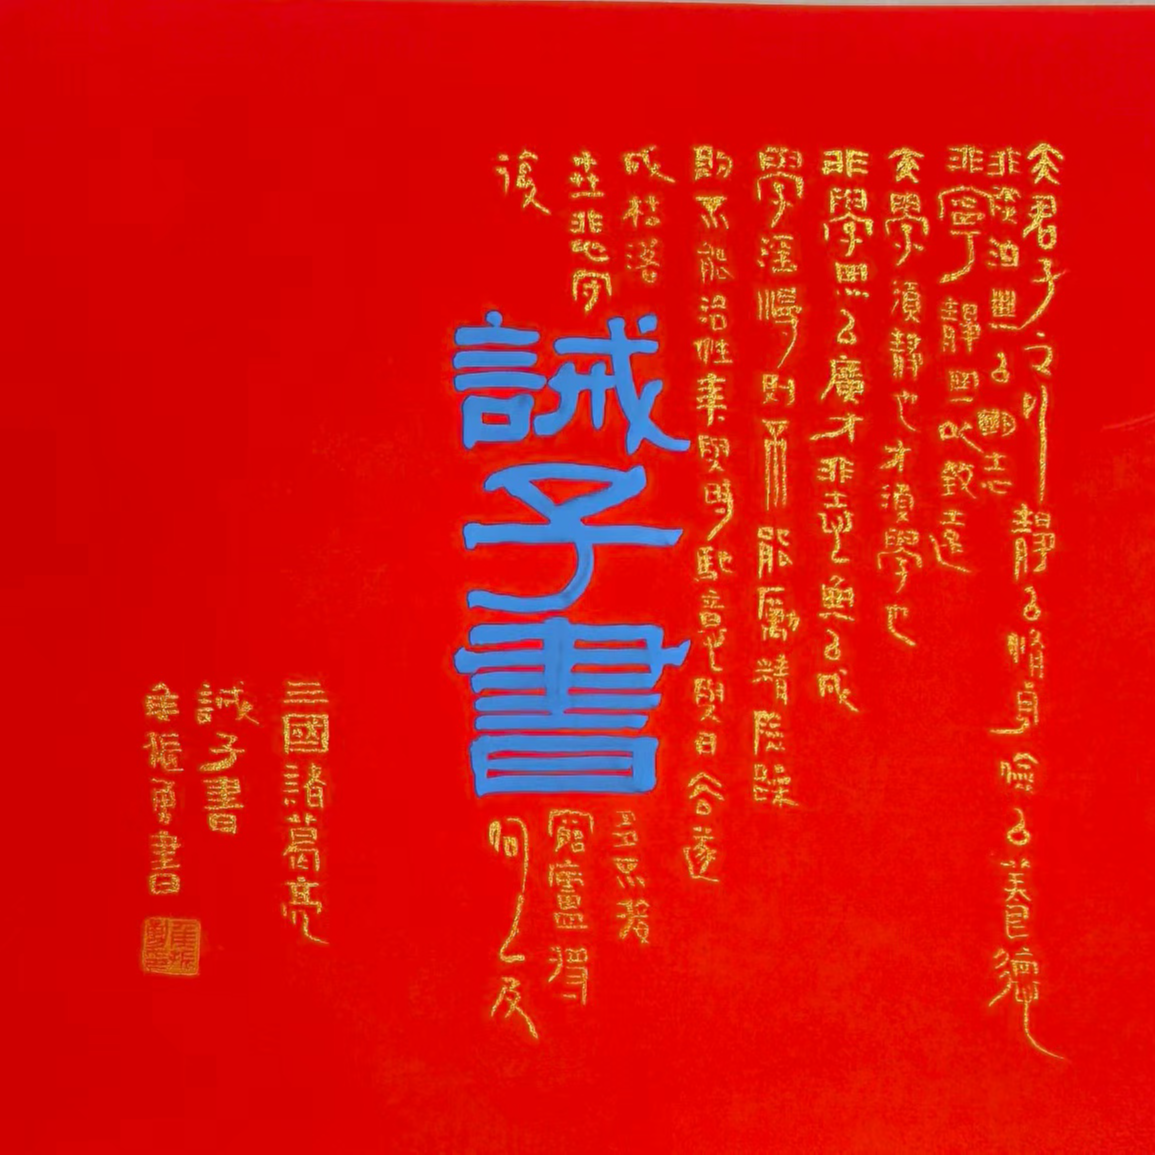 夫君子之行靜以脩身儉以養德
非淡泊無以明志
非寧靜無以致遠
夫學須靜也才須學也
非學無以廣才非志無以成
學淫慢則不能勵精險躁
則不能治性年與時馳意與日去遂
成枯落多不接
世悲守窮廬將
復何及
誡子書
三國諸葛亮
誡子書